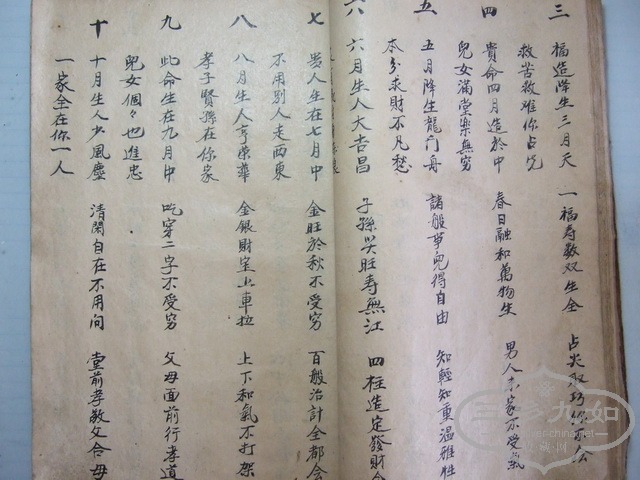 三
福造降生三月天 一福寿数双生全 占尖取巧你不会
救苦救难你占先
四
貴命四月造於中 春日融和萬物生 男人 家不受氣
兒女滿堂樂無穷
五
五月降生龍门舟 諸般爭兒得自由 知輕知重温雅性
本分求財不凡愁
六
六月生人大吉昌 子孫兴旺寿無江 四柱造定發財
七
贵人生在七月中 金旺於秋不受穷 百般治計全都会
不用别人走西東
八
八月生人亨荣華 金銀財宝上車拉 上下和氣不打架
孝子賢孫在你家
九
此命生在九月中 吃穿二字不受穷 父母面前行孝道
兒女個々也進忠
十
十月生人少風塵 清閑自在不用问 堂前孝敬父合母
一家全在你一人